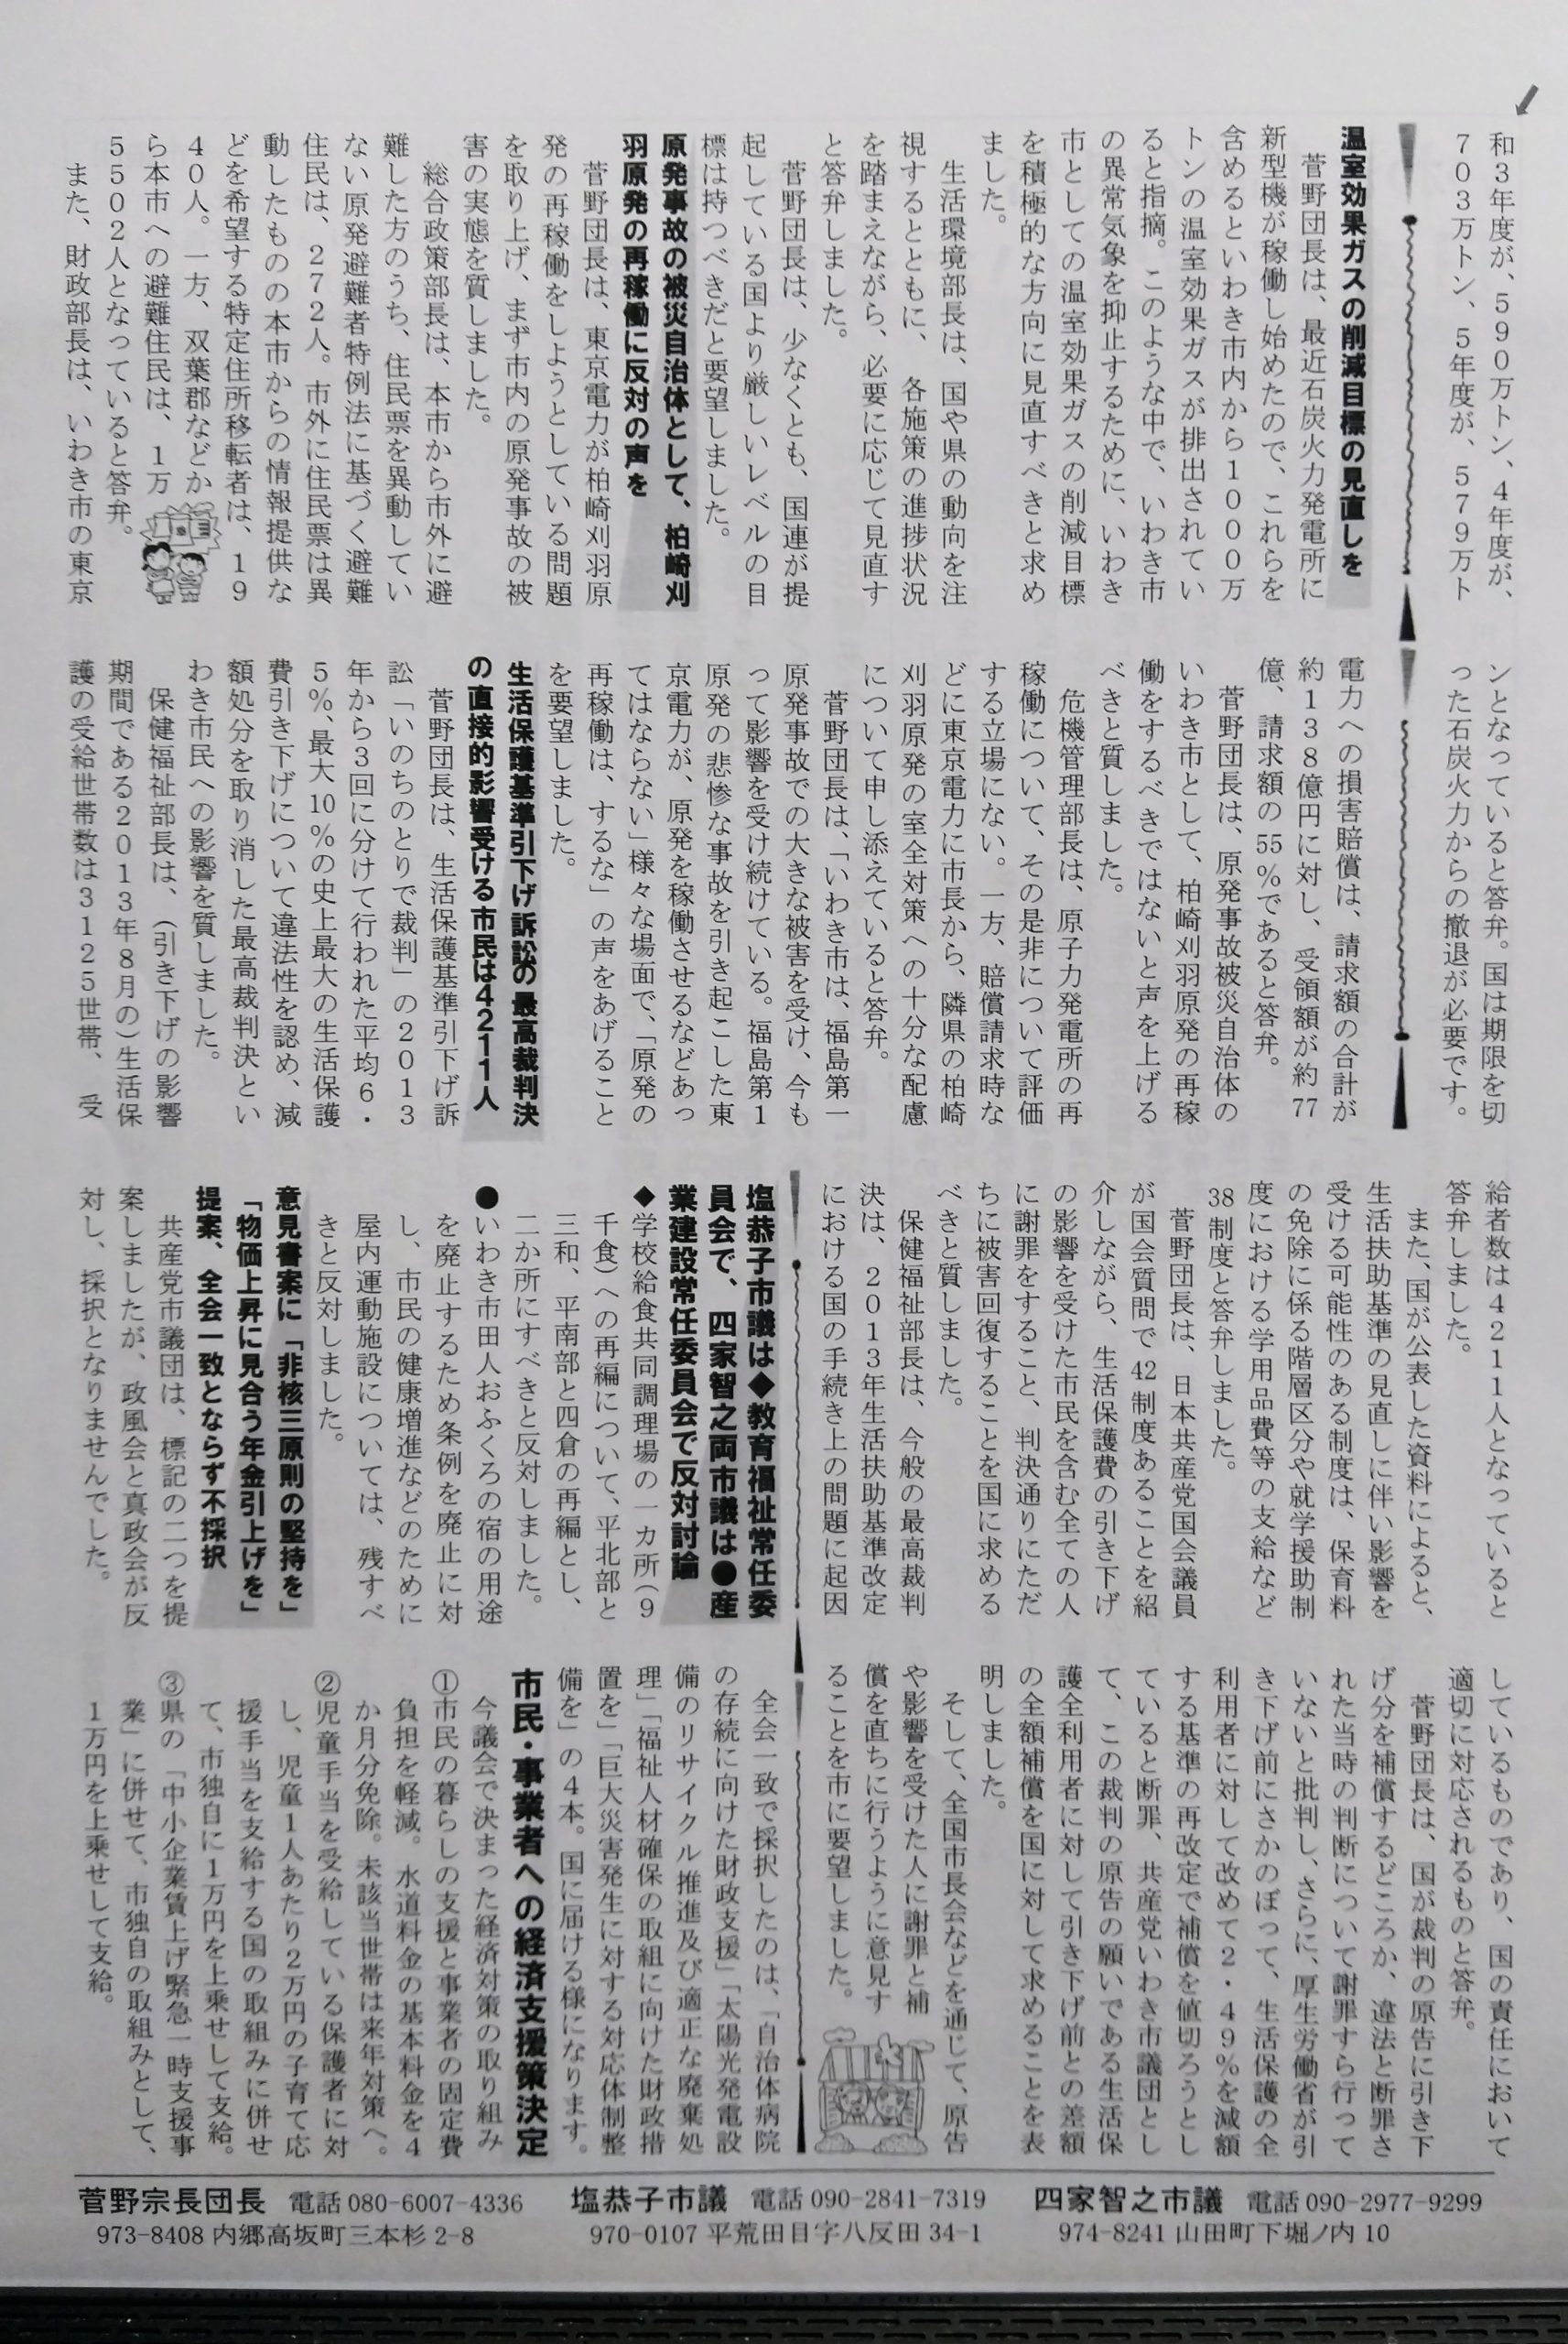 和3年度が、590万トン、4年度が、
703万トン、5年度が、579万ト
ンとなっていると答弁。国は期限を切
った石炭火力からの撤退が必要です。
温室効果ガスの削減目標の見直しを
菅野団長は、最近石炭火力発電所に
新型機が稼働し始めたので、これらを
含めるといわき市内から1000万
トンの温室効果ガスが排出されてい
ると指摘。このような中で、いわき市
の異常気象を抑止するために、いわき
市としての温室効果ガスの削減目標
を積極的な方向に見直すべきと求め
ました。
生活環境部長は、国や県の動向を注
視するとともに、各施策の進捗状況
を踏まえながら、必要に応じて見直す
と答弁しました。
菅野団長は、少なくとも、国連が提
起している国より厳しいレベルの目
標は持つべきだと要望しました。
原発事故の被災自治体として、柏崎刈
羽原発の再稼働に反対の声を
菅野団長は、東京電力が柏崎刈羽原
発の再稼働をしようとしている問題
を取り上げ、まず市内の原発事故の被
害の実態を質しました。
総合政策部長は、本市から市外に避
難した方のうち、住民票を異動してい
ない原発避難者特例法に基づく避難
住民は、272人。市外に住民票は異
動したものの本市からの情報提供な
どを希望する特定住所移転者は、19
40人。一方、双葉郡などか
ら本市への避難住民は、1万
5502人となっていると答弁。
また、財政部長は、いわき市の東京
電力への損害賠償は、請求額の合計が
約138億円に対し、受領額が約77
億、請求額の55%であると答弁。
菅野団長は、原発事故被災自治体の
いわき市として、柏崎刈羽原発の再稼
働をするべきではないと声を上げる
べきと質しました。
危機管理部長は、原子力発電所の再
稼働について、その是非について評価
する立場にない。一方、賠償請求時な
どに東京電力に市長から、隣県の柏崎
刈羽原発の室全対策への十分な配慮
について申し添えていると答弁。
菅野団長は、「いわき市は、福島第一
原発事故での大きな被害を受け、今も
って影響を受け続けている。福島第1
原発の悲惨な事故を引き起こした東
京電力が、原発を稼働させるなどあっ
てはならない」様々な場面で、「原発の
再稼働は、するな」の声をあげること
を要望しました。
生活保護基準引下げ訴訟の最高裁判決
の直接的影響受ける市民は4211人
菅野団長は、生活保護基準引下げ訴
訟「いのちのとりで裁判」の2013
年から3回に分けて行われた平均6・
5%、最大10%の史上最大の生活保護
費引き下げについて違法性を認め、減
額処分を取り消した最高裁判決とい
わき市民への影響を質しました。
保健福祉部長は、(引き下げの影響
期間である2013年8月の)生活保
護の受給世帯数は3125世帯、受
給者数は4211人となっていると
答弁しました。
また、国が公表した資料によると、
生活扶助基準の見直しに伴い影響を
受ける可能性のある制度は、保育料
の免除に係る階層区分や就学援助制
度における学用品費等の支給など
38制度と答弁しました。
菅野団長は、日本共産党国会議員
が国会質問で42制度あることを紹
介しながら、生活保護費の引き下げ
の影響を受けた市民を含む全ての人
に謝罪をすること、判決通りにただ
ちに被害回復することを国に求める
べきと質しました。
保健福祉部長は、今般の最高裁判
決は、2013年生活扶助基準改定
における国の手続き上の問題に起因
しているものであり、国の責任において
適切に対応されるものと答弁。
菅野団長は、国が裁判の原告に引き下
げ分を補償するどころか、違法と断罪さ
れた当時の判断について謝罪すら行って
いないと批判し、さらに、厚生労働省が引
き下げ前にさかのぼって、生活保護の全
利用者に対して改めて2・49%を減額
する基準の再改定で補償を値切ろうとし
ていると断罪、共産党いわき市議団とし
て、この裁判の原告の願いである生活保
護全利用者に対して引き下げ前との差額
の全額補償を国に対して求めることを表
明しました。
そして、全国市長会などを通じて、原告
や影響を受けた人に謝罪と補
償を直ちに行うように意見す
ることを市に要望しました。
塩恭子市議は◆教育福祉常任委
員会で、四家智之両市議は●産
業建設常任委員会で反対討論
◆学校給食共同調理場の一カ所(9
千食)への再編について、平北部と
三和、平南部と四倉の再編とし、
二か所にすべきと反対しました。
●いわき市田人おふくろの宿の用途
を廃止するため条例を廃止に対
し、市民の健康増進などのために
屋内運動施設については、残すべ
きと反対しました。
意見書案に「非核三原則の堅持を」
「物価上昇に見合う年金引上げを」
提案、全会一致とならず不採択
共産党市議団は、標記の二つを提
案しましたが、政風会と真政会が反
対し、採択となりませんでした。
全会一致で採択したのは、「自治体病院
の存続に向けた財政支援」「太陽光発電設
備のリサイクル推進及び適正な廃棄処
理」「福祉人材確保の取組に向けた財政措
置を」「巨大災害発生に対する対応体制整
備を」の4本。国に届ける様になります。
市民・事業者への経済支援策決定
今議会で決まった経済対策の取り組み
①市民の暮らしの支援と事業者の固定費
負担を軽減。水道料金の基本料金を4
か月分免除。未該当世帯は来年対策へ。
②児童手当を受給している保護者に対
し、児童1人あたり2万円の子育て応
援手当を支給する国の取組みに併せ
て、市独自に1万円を上乗せして支給。
③県の「中小企業賃上げ緊急一時支援事
業」に併せて、市独自の取組みとして、
1万円を上乗せして支給。
菅野宗長団長 電話080-6007-4336
973-8408 内郷高坂町三本杉 2-8
塩恭子市議 電話090-2841-7319
970-0107 平荒田目字八反田 34-1
四家智之市議 電話090-2977-9299
974-8241 山田町下堀ノ内 10